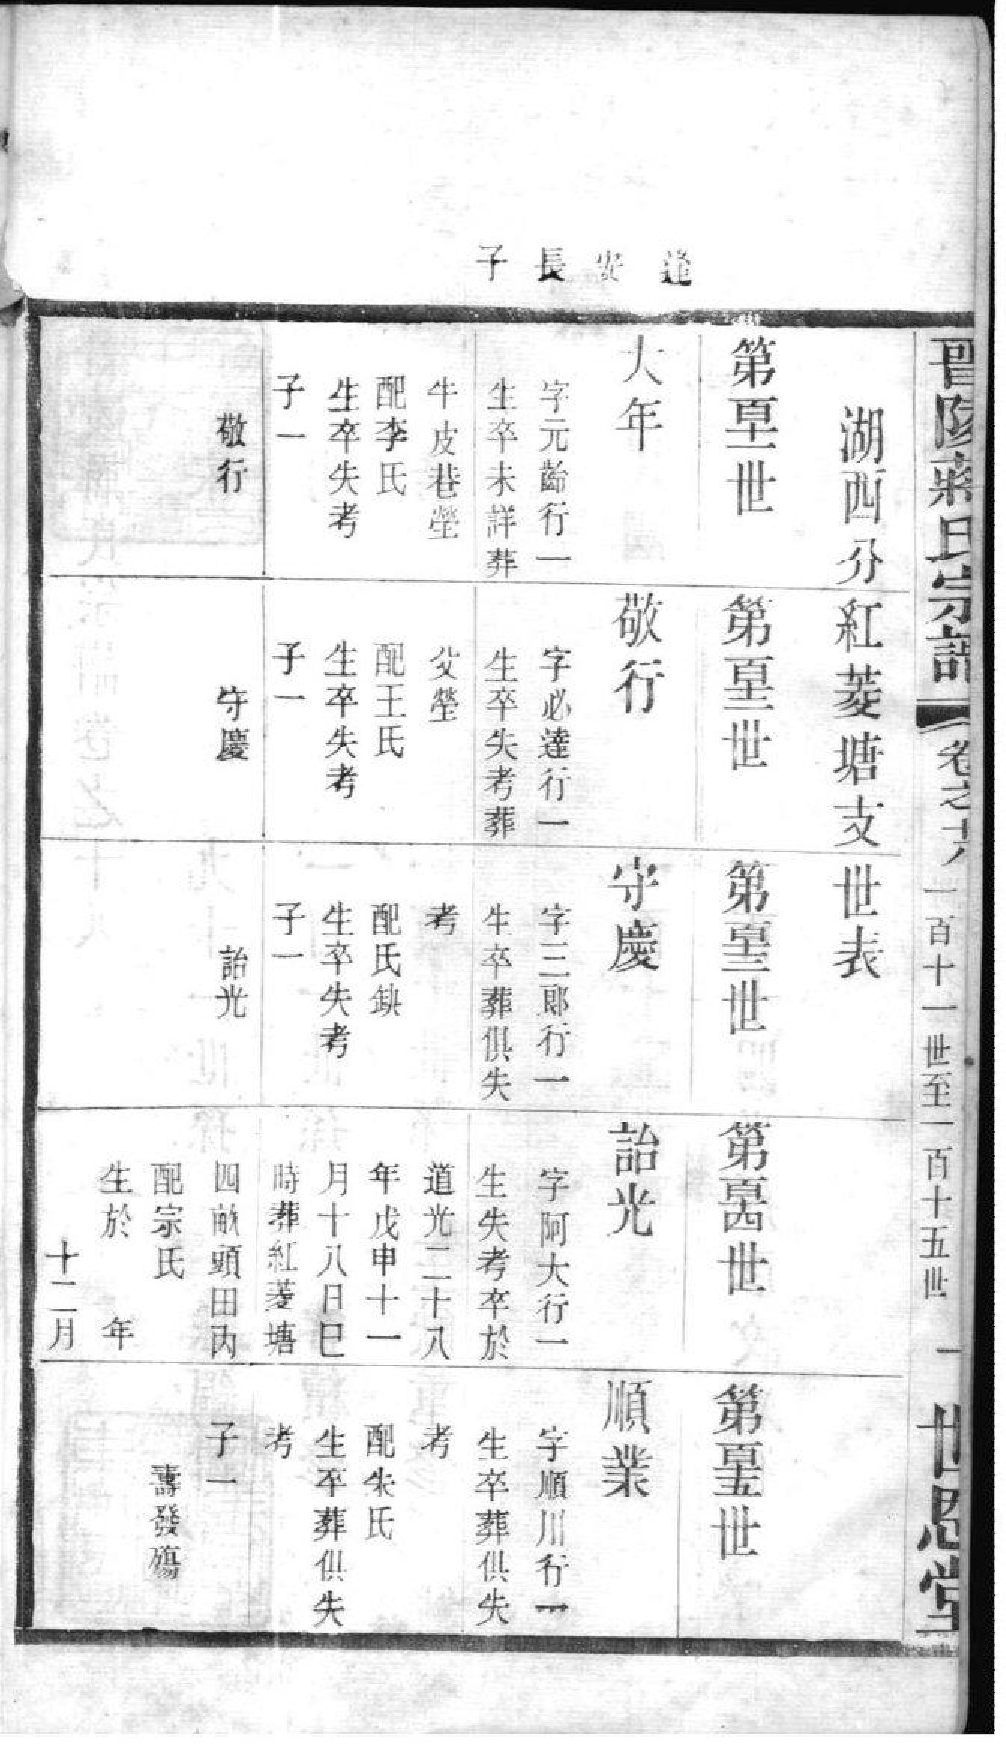 晉陵蔣氏宗譜 卷之十八 一百十一世至一百十五世 一 世恩堂
湖西分紅菱塘支世表
逢安長子
第百十一世
大年
字元齡行一
生卒未詳葬
牛皮巷塋
配李氏
生卒失考
子一
敬行
第百十二世
敬行
字必達行一
生卒失考葬
父塋
配王氏
生卒失考
子一
守慶
第百十三世
守慶
字三郎行一
生卒葬俱失
考
配氏缺
生卒失考
子一
詒光
第百十四世
詒光
字阿大行一
生失考卒於
道光二十八
年戊申十一
月十八日巳
時葬紅菱塘
四畝頭田內
配宗氏
生於 年
十二月
第百十五世
順業
字順川行一
生卒葬俱失
考
配朱氏
生卒葬俱失
考
子一
壽發殤